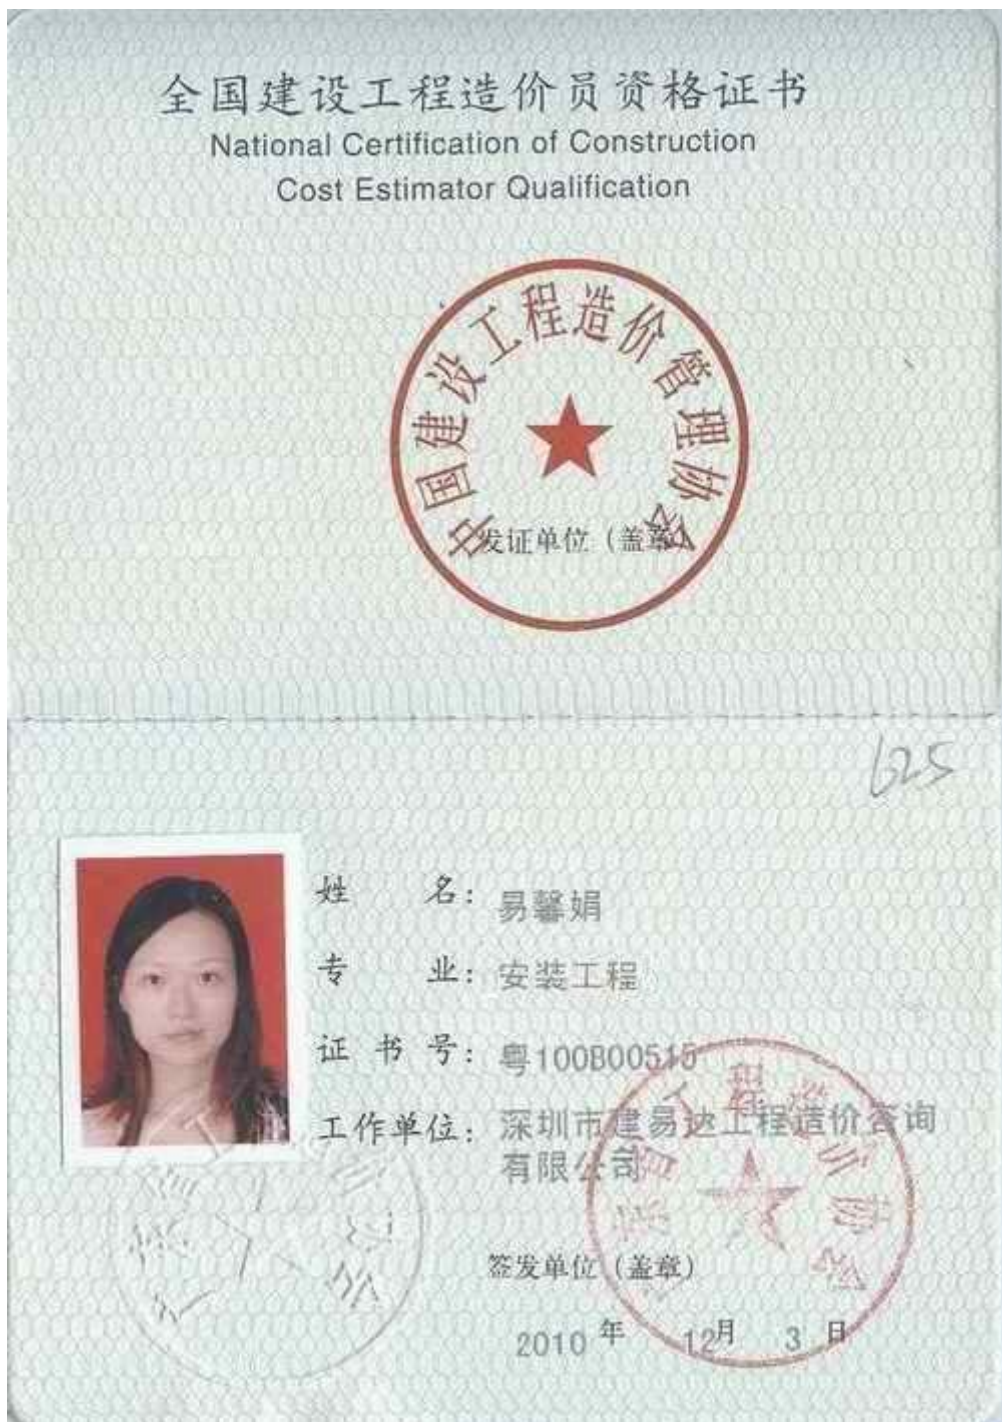 全国建设工程造价员资格证书
National Certification of Construction
Cost Estimator Qualification
中国建设工程造价管理协会
发证单位（盖章）
625
姓 名：易馨娟
专 业：安装工程
证 书 号：粤100B00515
工作单位：深圳市建易达工程造价咨询
有限公司
广东省工程造价协会
签发单位（盖章）
2010 年 12月 3 日